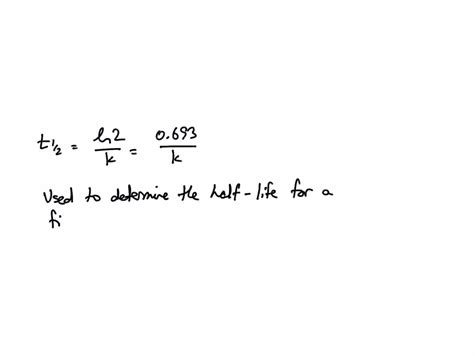 t½ = ln2/k = 0.693/k
Used to determine the half-life for a
fi